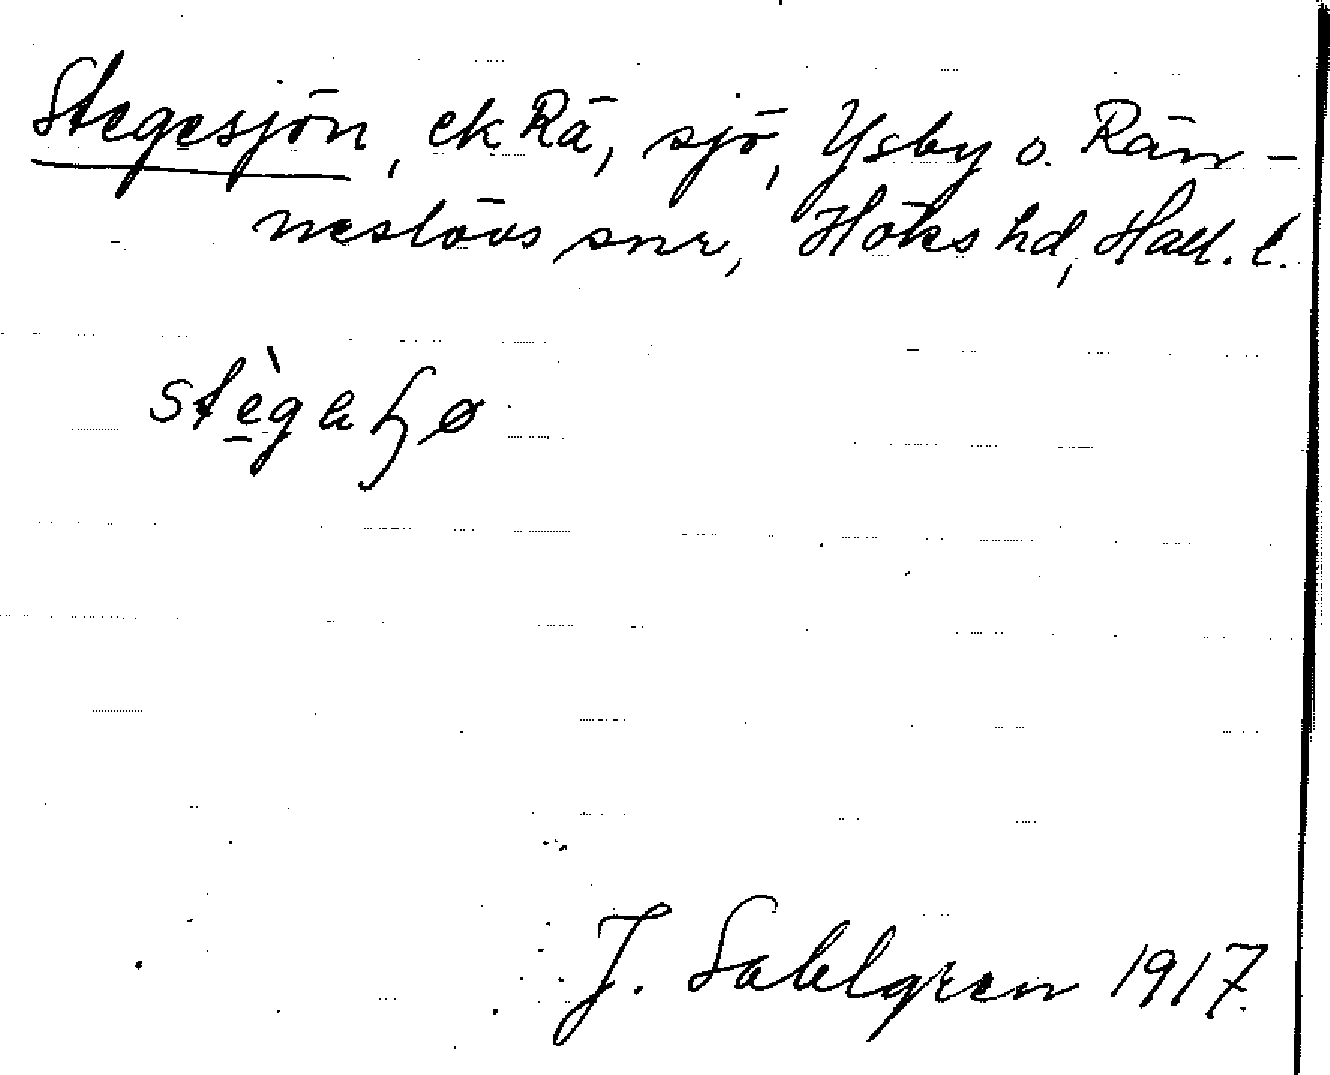 Stegesjön, ek Rä, sjö, Ysby o. Rän-
neslövs snr, Höks hd, Hall. l.
J. Sahlgren 1917